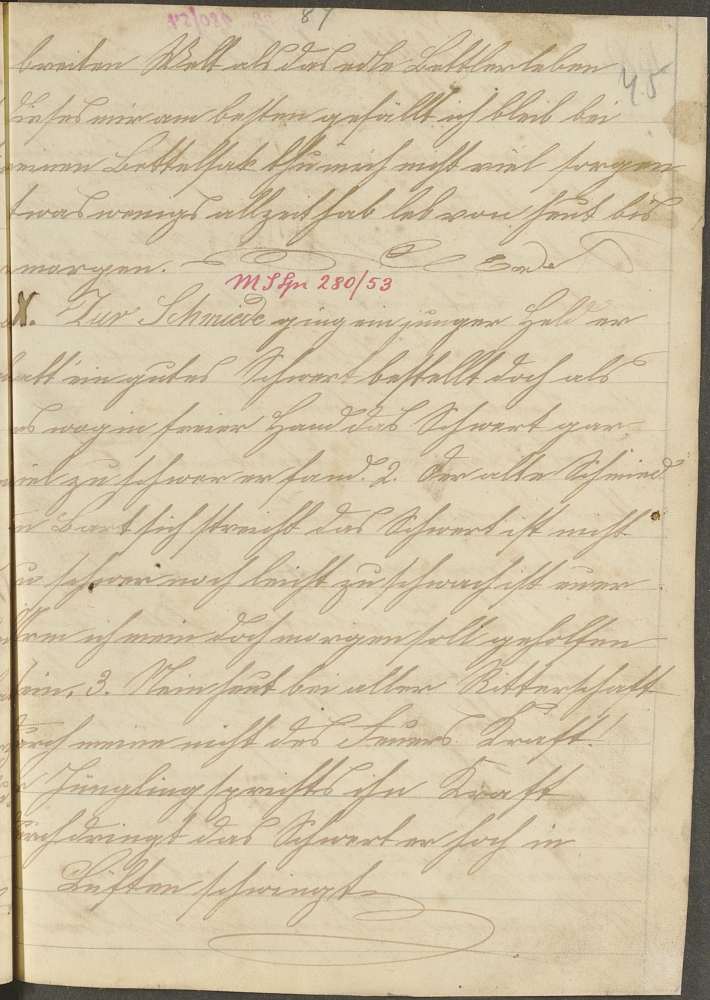 87
45
breiten Welt als das edle Bettlerleben
dieses mir am besten gefällt ich bleib bei
meinen Bettelsak thu mich nicht viel sorgen
etwas wenigs allzeit hab leb von heut bis
morgen. Ende
MS Hn 280/53
X. Zur Schmiede ging ein junger Held er
hatt ein gutes Schwert bestellt doch als
es wog in freier Hand das Schwert gar
viel zu schwer er fand. 2. Der alte Schmied
den Bart sich streicht das Schwert ist nicht
zu schwer noch leicht zu schwach ist euer
Arm ich mein doch morgen soll geholfen
sein. 3. Nein heut bei aller Ritterschaft
durch meine nicht des Feuers Kraft!
Jüngling sprichts ihn Kraft
durchdringt das Schwert er hoch in
Lüften schwingt